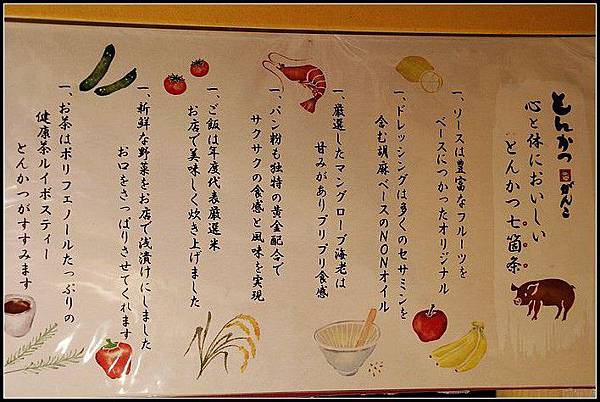 とんかつ
がんこ
心と体においしい
とんかつ七箇条
一、ソースは豊富なフルーツを
ベースにつかったオリジナル
一、ドレッシングは多くのセサミンを
含む胡麻ベースのNONオイル
一、厳選したマングローブ海老は
甘みがありプリプリ食感
一、パン粉も独特の黄金配合で
サクサクの食感と風味を実現
一、ご飯は年度代表厳選米
お店で美味しく炊き上げました
一、新鮮な野菜をお店で浅漬けにしました
お口をさっぱりさせてくれます
一、お茶はポリフェノールたっぷりの
健康茶ルイボスティー
とんかつがすすみます